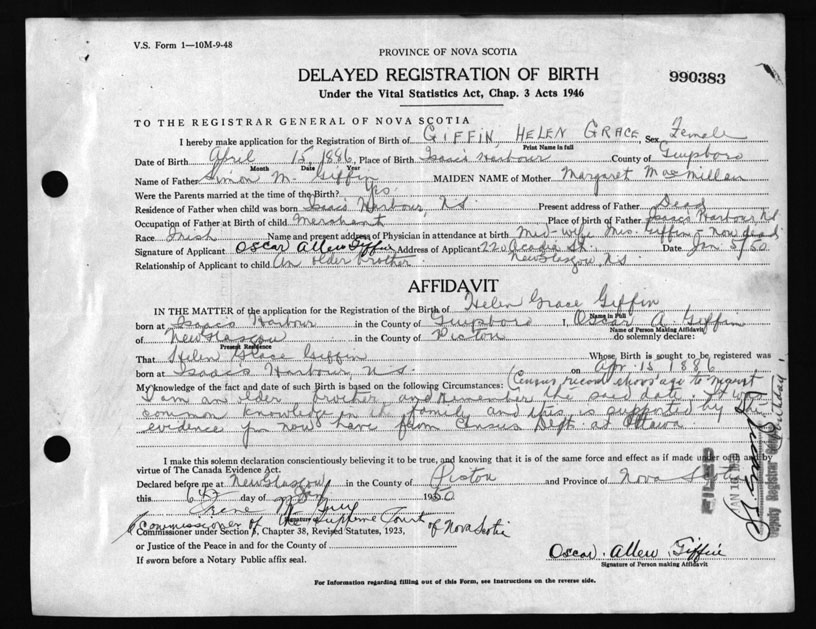 V.S. Form 1—10M-9-48
PROVINCE OF NOVA SCOTIA
DELAYED REGISTRATION OF BIRTH
990383
Under the Vital Statistics Act, Chap. 3 Acts 1946
TO THE REGISTRAR GENERAL OF NOVA SCOTIA
I hereby make application for the Registration of Birth of GIFFIN, HELEN GRACE, Sex Female
Print Name in full
Date of Birth April 15, 1886, Place of Birth Isaac's Harbour County of Guysboro
Month Date Year
Name of Father Simon M. Giffin MAIDEN NAME of Mother Margaret MacMillan
Were the Parents married at time of the Birth? Yes.
Residence of Father when child was born Isaac's Harbour, N.S. Present address of Father Dead
Occupation of Father at Birth of child Merchant Place of birth of Father Isaac's Harbour N.S.
Race Irish Name and present address of Physician in attendance at birth Mid-wife Mrs. Giffin - now dead
Signature of Applicant Oscar Allen Giffin Address of Applicant 220 Acadia St. Date Jan 5/50
Relationship of Applicant to child An older brother New Glasgow, N.S.
AFFIDAVIT
IN THE MATTER of the application for the Registration of the Birth of Helen Grace Giffin
Name in Full
born at Isaac's Harbour in the County of Guysboro I, Oscar A. Giffin
Name of Person Making Affidavit
of New Glasgow in the County of Pictou do solemnly declare:
Present Residence
That Helen Grace Giffin Whose Birth is sought to be registered was
born at Isaac's Harbour, N.S. on Apr. 15 1886
My knowledge of the fact and date of such Birth is based on the following Circumstances: (Census record shows age to
I am an older brother and remember the said date. It was
common knowledge in the family and this is supported by the
evidence you now have from Census Dept. at Ottawa.
I make this solemn declaration conscientiously believing it to be true, and knowing that it is of the same force and effect as if made under oath and by
virtue of The Canada Evidence Act.
Declared before me at New Glasgow in the County of Pictou and Province of Nova Scotia
this 6th day of Jan 1950
Signature
A commissioner of the Supreme Court of Nova Scotia
Commissioner under Section 5, Chapter 38, Revised Statutes, 1923,
or Justice of the Peace in and for the County of
If sworn before a Notary Public affix seal.
Oscar Allen Giffin
Signature of Person making Affidavit
For Information regarding filling out of this Form, see Instructions on the reverse side.
Deputy Registrar